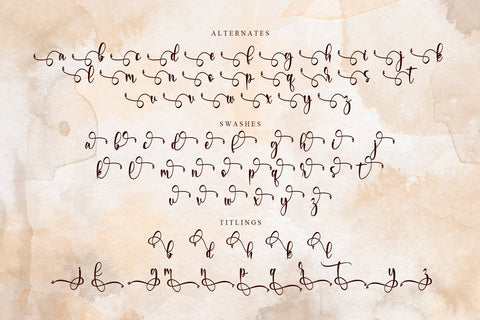 ALTERNATES
a b c d e f g h i j k
l m n o p q r s t
u v w x y z
SWASHES
a b c d e f g h i j
k l m n o p q r s t
u v w x y z
TITLINGS
b d h k l
j f g m n p q r t y z